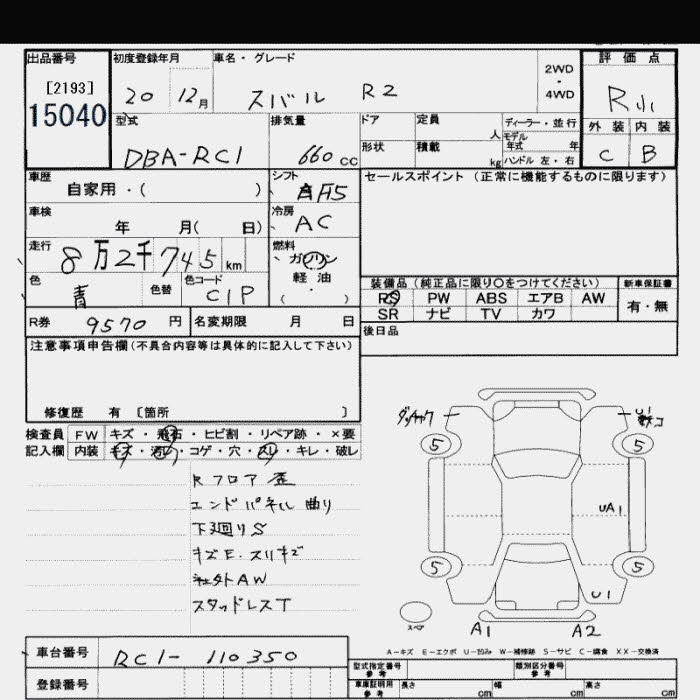 出品番号 初度登録年月 車名・グレード 評価点
[2193] 20 12月 スバル R2 2WD・4WD R小
15040
型式 排気量 ドア 定員 人 ディーラー・並行 外装 内装
DBA-RC1 660 CC 形状 積載 kg モデル年式 年 C B
ハンドル 左・右
車歴 シフト セールスポイント (正常に機能するものに限ります)
自家用・( ) F5
車検 冷房
年 月( 日) AC
走行 燃料
8万2千745km ガソリン
軽油
色 色替 色コード ( )
青 C1P
装備品 (純正品に限り○をつけてください) 新車保証書
PS PW ABS エアB AW 有・無
SR ナビ TV カワ
R券 9570円 名変期限 月 日 後日品
注意事項申告欄(不具合内容等は具体的に記入して下さい)
修復歴 有 〔箇所 〕
検査員 FW キズ・飛石・ヒビ割・リペア跡・×要
記入欄 内装 キズ・汚レ・コゲ・穴・スレ・キレ・破レ
Rフロア歪
エンドパネル曲り
下廻りS
キズE.スリキズ
社外AW
スタッドレスT
U1
5 5
UA1
5 5
U1
スペア A1 A2
A-キズ E-エクボ U-凹み W-補修跡 S-サビ C-腐食 XX-交換済
車台番号 RC1-110350
登録番号
型式指定番号 参考 類別区分番号 参考
車庫証明用 参考 長さ cm 幅 cm 高さ cm